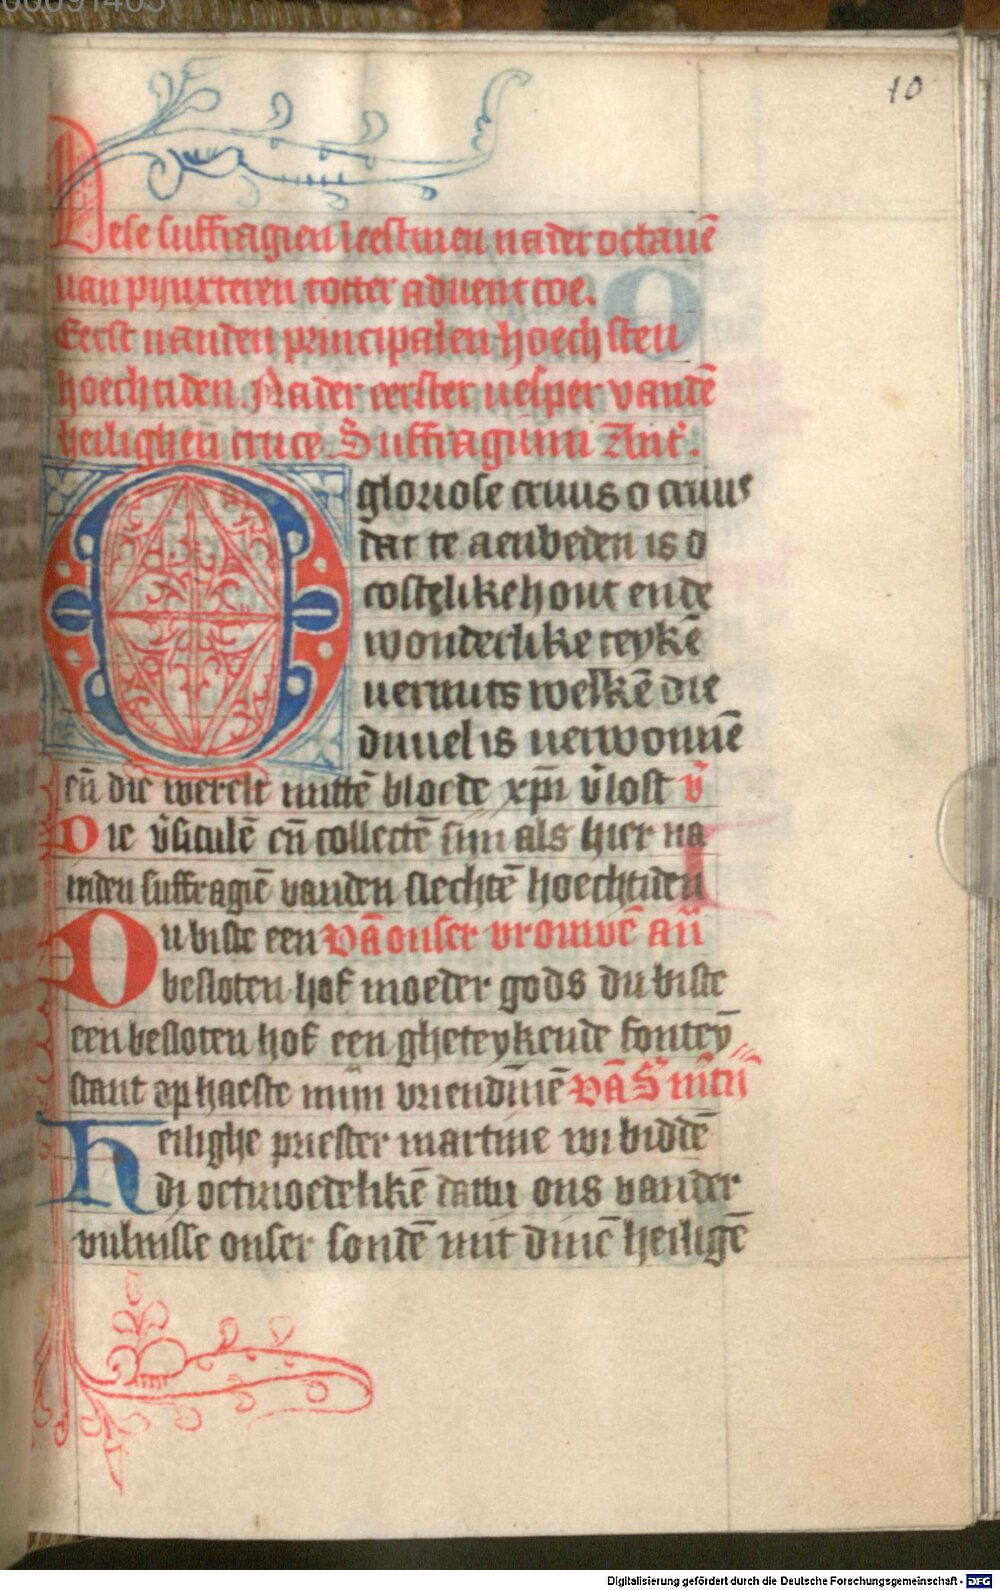 10
Dese suffragien leestmen nader octauē
van pynxteren totter aduent toe.
Eerst vanden principalen hoechsten
hoechtiden. Nader eerster uesper vandē
heilighen cruce. Suffragium Ant.
O gloriose cruus o cruus
dat te aenbeden is o
costelike hout ende
wonderlike teykē
uermits welkē die
duuel is uerwonnē
eñ die werelt mittē bloede xpi v̄lost v̄
Die v̄siculē eñ collectē sijn als hier na
inden suffragiē vanden slechtē hoechtiden
Du biste een vā onser vrouwē añ
besloten hof moeder gods du biste
een besloten hof een gheteykende fonteȳ
stant op haeste mijn vriendīnē vā S mtij
Heilighe priester martine wi biddē
di oetmoedelikē dattu ons vander
vulnisse onser sondē mit dinē heiligē
Digitalisierung gefördert durch die Deutsche Forschungsgemeinschaft - DFG